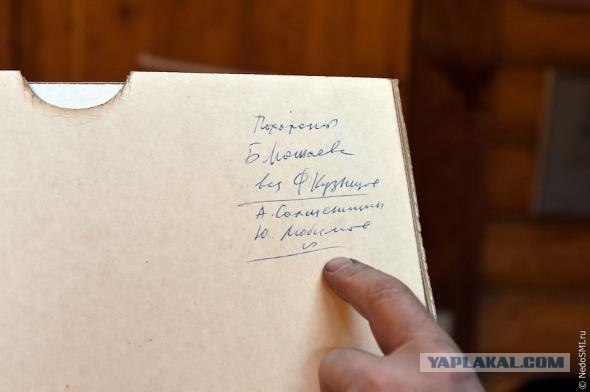 Похороны
Б. Можаева
вед Ф Кузнецов
А. Солженицын
Ю. Любимов
YAPLAKAL.COM
© NedoSMI.ru